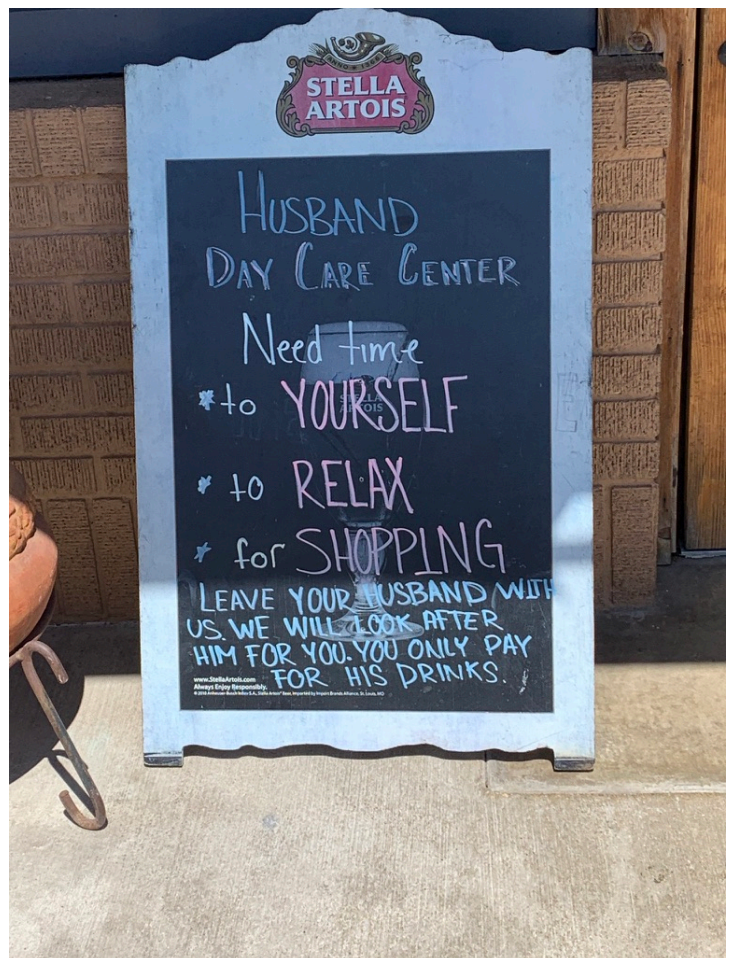 ANNO 1366
STELLA
ARTOIS
HUSBAND
DAY CARE CENTER
Need time
* to YOURSELF
STELLA
ARTOIS
* to RELAX
* for SHOPPING
LEAVE YOUR HUSBAND WITH
US. WE WILL LOOK AFTER
HIM FOR YOU. YOU ONLY PAY
FOR HIS DRINKS.
www.StellaArtois.com
Always Enjoy Responsibly.